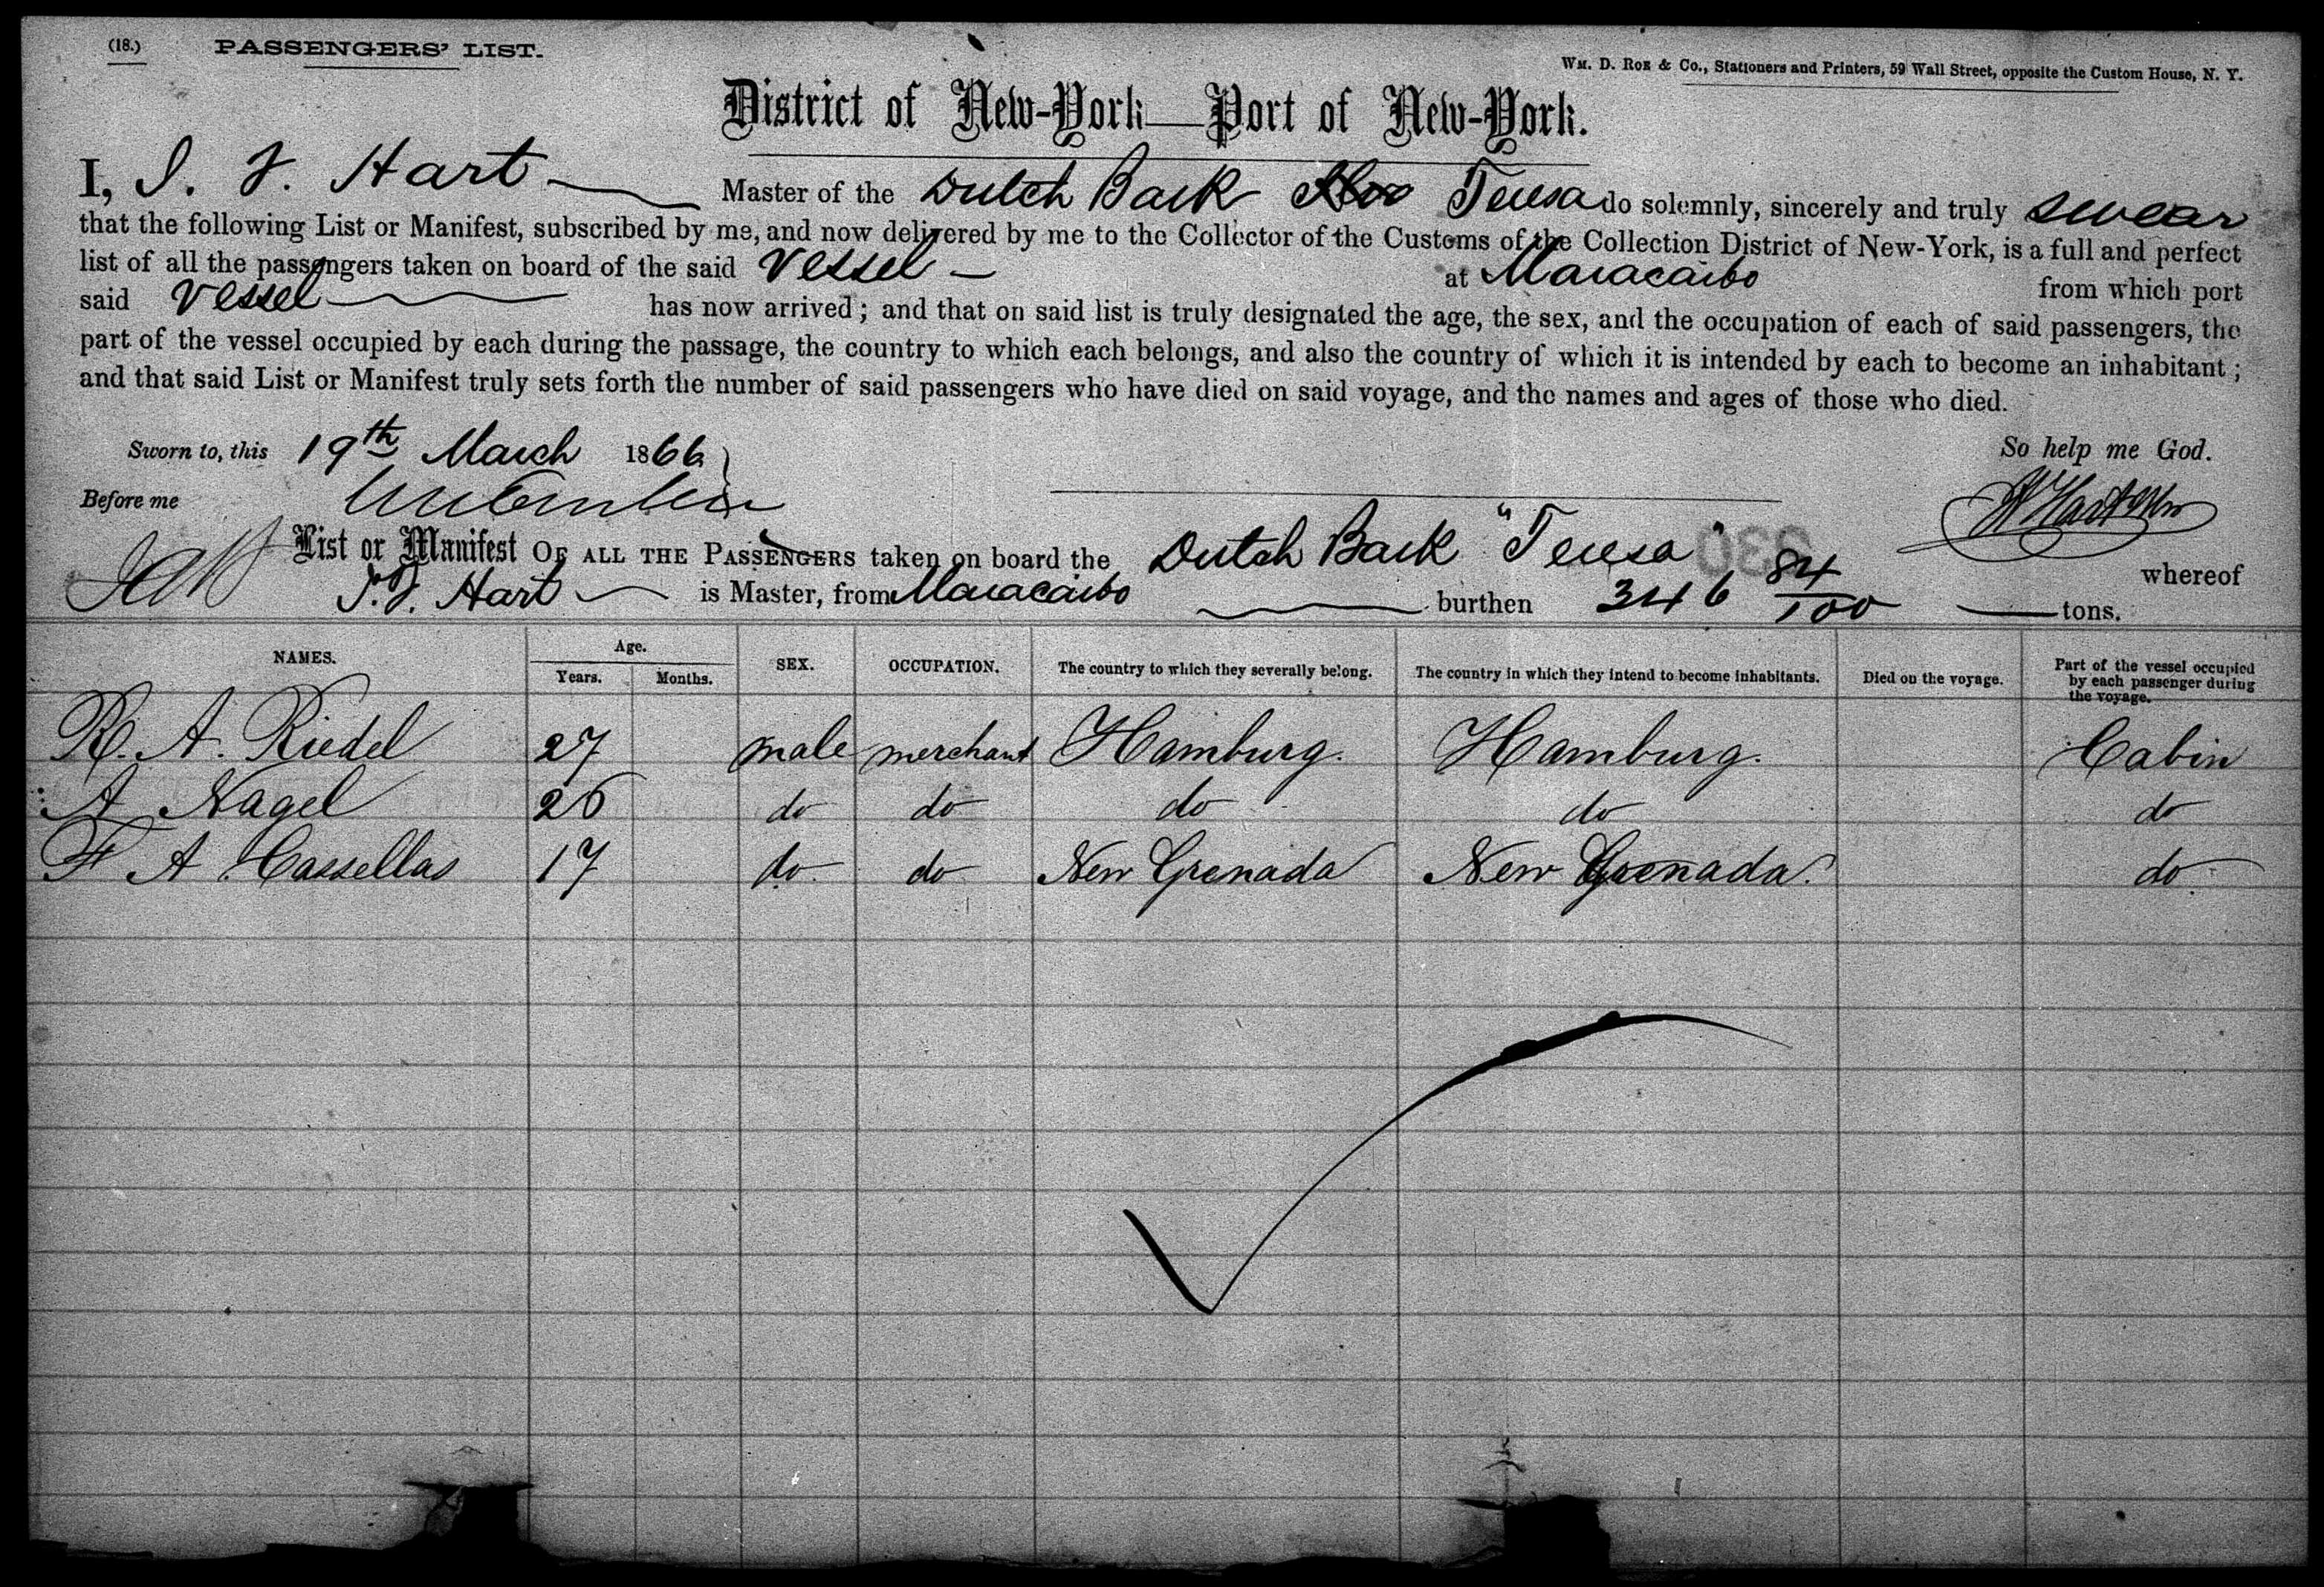 (18.) PASSENGERS' LIST.
WM. D. ROE & Co., Stationers and Printers, 59 Wall Street, opposite the Custom House, N. Y.
District of New-York—Port of New-York.
I, J. J. Hart Master of the Dutch Bark Teresa do solemnly, sincerely and truly swear
that the following List or Manifest, subscribed by me, and now delivered by me to the Collector of the Customs of the Collection District of New-York, is a full and perfect
list of all the passengers taken on board of the said Vessel — at Maracaibo from which port
said Vessel has now arrived; and that on said list is truly designated the age, the sex, and the occupation of each of said passengers, the
part of the vessel occupied by each during the passage, the country to which each belongs, and also the country of which it is intended by each to become an inhabitant;
and that said List or Manifest truly sets forth the number of said passengers who have died on said voyage, and the names and ages of those who died.
Sworn to, this 19th March 1866 So help me God.
Before me
List or Manifest OF ALL THE PASSENGERS taken on board the Dutch Bark "Teresa" whereof
J. J. Hart is Master, from Maracaibo burthen 346 84/100 tons.
NAMES. Age. Years. Months. SEX. OCCUPATION. The country to which they severally belong. The country in which they intend to become inhabitants. Died on the voyage. Part of the vessel occupied by each passenger during the voyage.
R. A. Riedel 27 male merchant Hamburg. Hamburg. Cabin
A Nagel 26 do do do do do
F A Cassellas 17 do do New Grenada New Grenada. do